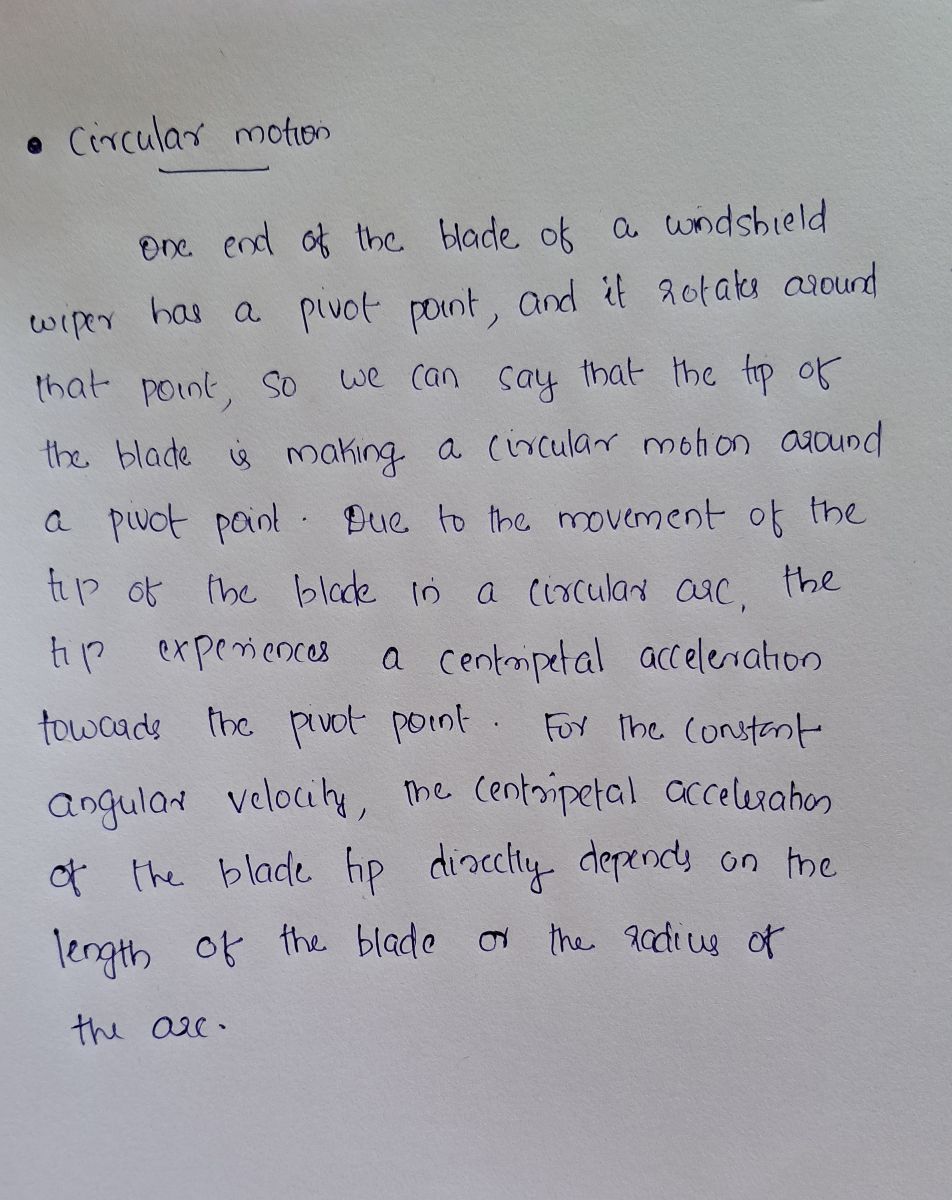 • Circular motion
One end of the blade of a windshield
wiper has a pivot point, and it rotates around
that point, so we can say that the tip of
the blade is making a circular motion around
a pivot point. Due to the movement of the
tip of the blade in a circular arc, the
tip experiences a centripetal acceleration
towards the pivot point. For the constant
angular velocity, the centripetal acceleration
of the blade tip directly depends on the
length of the blade or the radius of
the arc.